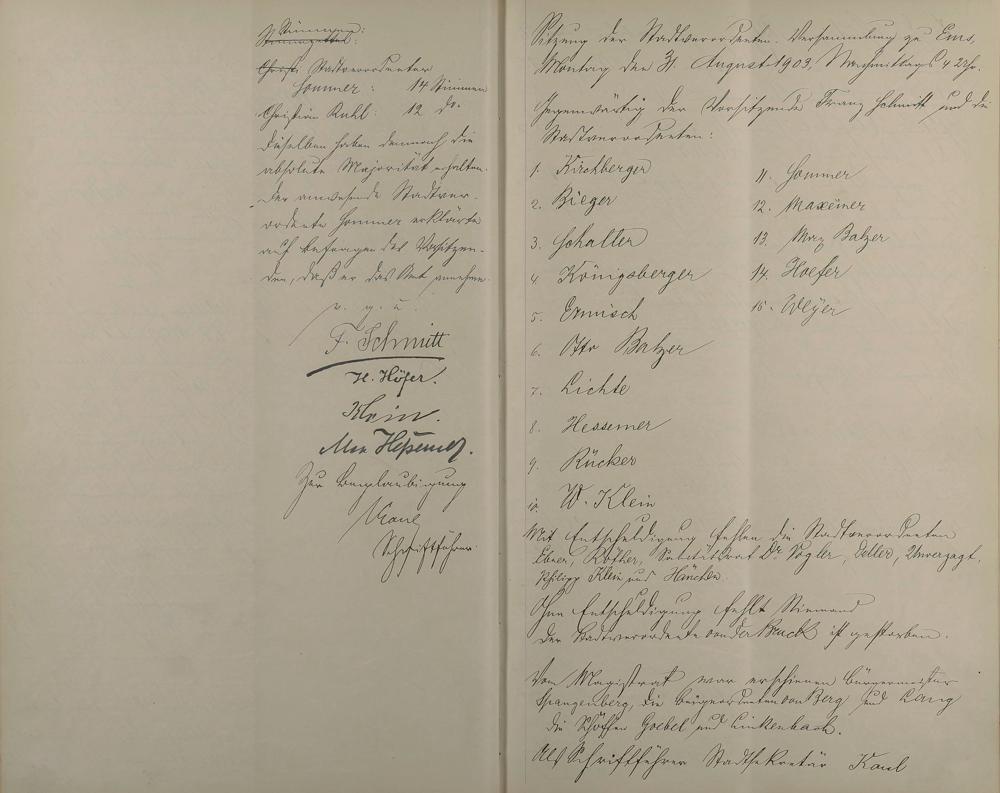 Stimmen:
Stimmzettel:
Christ. Stadtverordneter
Sommer: 14 Stimmen
Christian Ruhl: 12 do.
Dieselben haben demnach die
absolute Majorität erhalten.
Der anwesende Stadtver-
ordnete Sommer erklärte
auf Befragen des Vorsitzen-
den, daß er das Amt annehme.
v. g. u.
F. Schmitt
H. Höfer.
Klein.
Max Heßemer.
Zur Beglaubigung
Kaul
Schriftführer
Sitzung der Stadtverordneten-Versammlung zu Ems,
Montag, den 31. August 1903, Nachmittags 4 Uhr.
Gegenwärtig der Vorsitzende Franz Schmitt und die
Stadtverordneten:
1. Kirchberger
2. Bieger
3. Schaller
4. Königsberger
5. Ermisch
6. Otto Balzer
7. Lichte
8. Hessemer
9. Rücker
10. W. Klein
11. Sommer
12. Maxeiner
13. Max Balzer
14. Hoefer
15. Weyer
Mit Entschuldigung fehlen die Stadtverordneten
Ebner, Röther, Sanitätsrat Dr. Vogler, Zeller, Unverzagt,
Philipp Klein und Hänchen.
Ohne Entschuldigung fehlt Niemand
Der Stadtverordnete von der Bruck ist gestorben.
Vom Magistrat war erschienen Bürgermeister
Spangenberg, die Beigeordneten von Berg und Lang
die Schöffen Goebel und Linkenbach.
Als Schriftführer Stadtsekretär Kaul